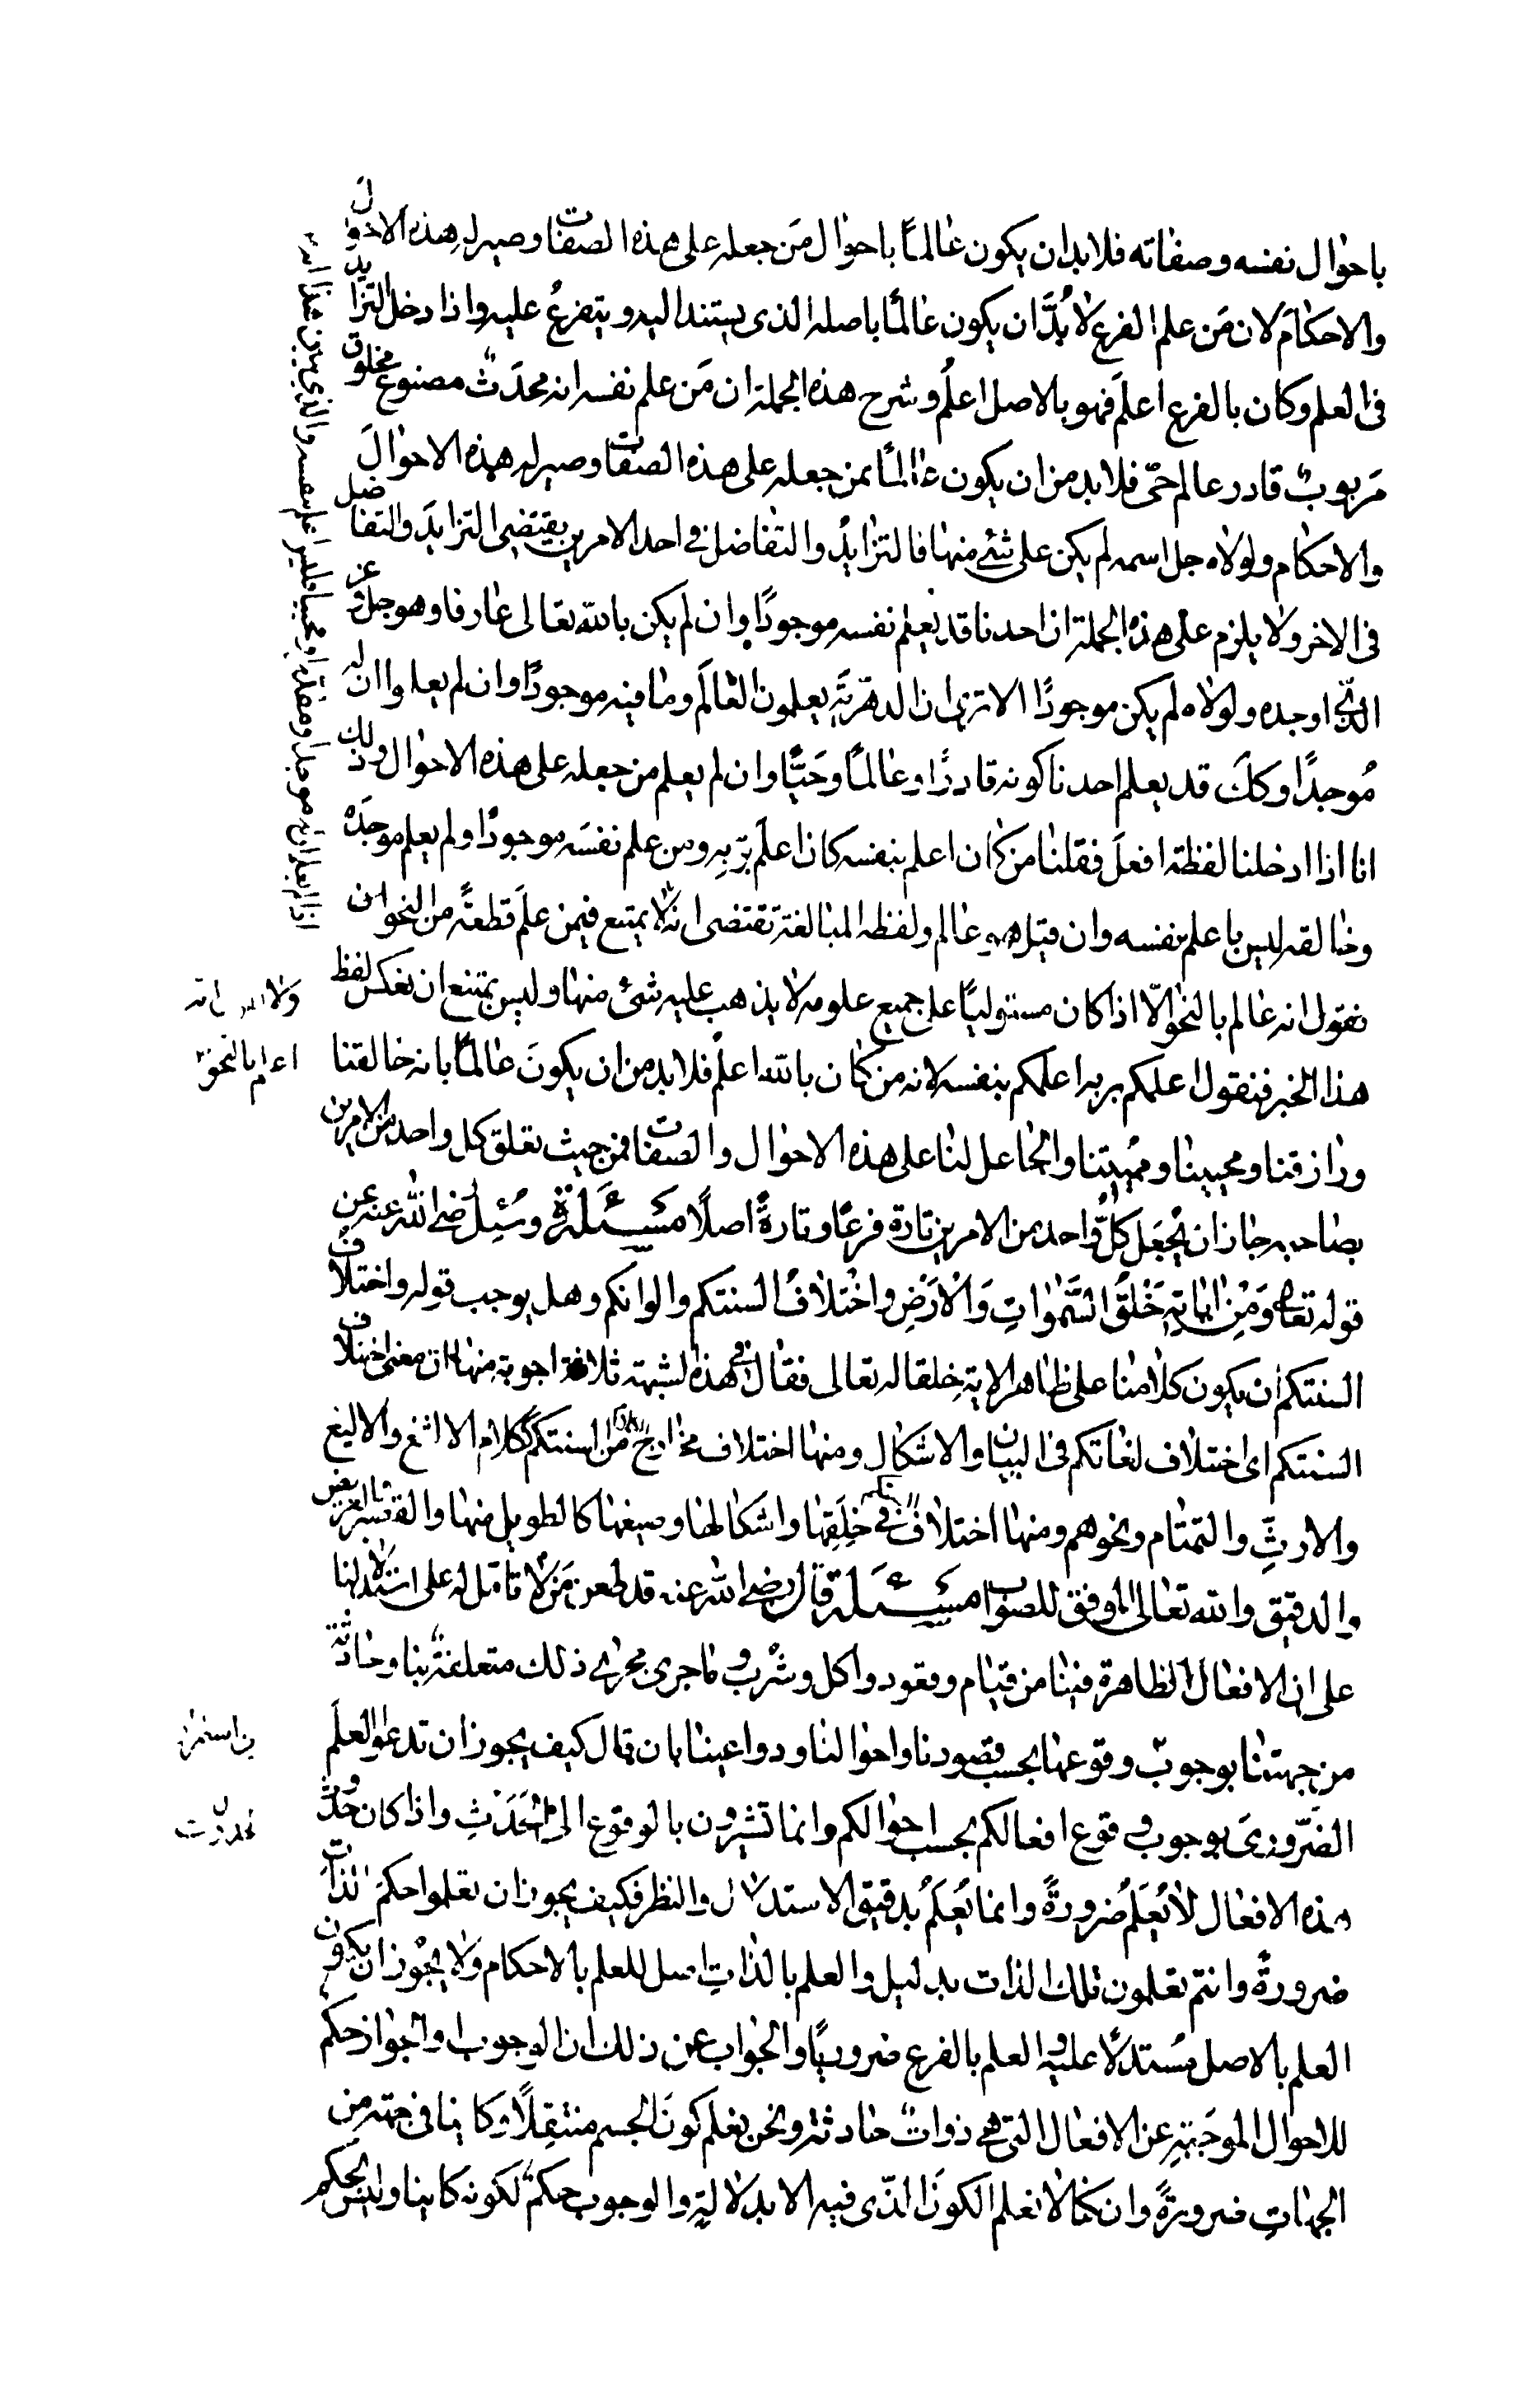 باحوال نفسه وصفاته فلابد ان يكون عالمًا باحوال مَن جعله على هذه الصفات وصير له هذه الاحوالَ
والاحكامَ لان مَن علم الفرع لا بُدَّ ان يكون عالمًا باصله الذى يستند اليه ويتفرعُ عليه واذا دخل التزايد
فى العلم وكان بالفرع اعلَم فهو بالاصل اعلمُ وشرح هذه الجملة ان مَن علم نفسه انه محدَثٌ مصنوع مخلوق
مَربوبٌ قادر عالم حىّ فلابد من ان يكون عالمًا بمن جعله على هذه الصفات وصير له هذه الاحوالَ
والاحكام ولولاه جل اسمه لم يكن على شئ منها فالتزايدُ والتفاضل فى احد الامرين يقتضى التزايدَ والتفاضل
فى الاخر ولا يلزم على هذه الجملة ان احدنا قد يعلم نفسه موجودًا وان لم يكن بالله تعالى عارفا وهو جل وعز
الذى اوجده ولولاه لم يكن موجودًا الا ترى ان الدهريَّة يعلمون العالَم وما فيه موجودًا وان لم يعلموا ان له
مُوجدًا وكك قد يعلم احدنا كونه قادرًا وعالمًا وحَيًّا وان لم يعلم من جعله على هذه الاحوال وذلك
انا اذا ادخلنا لفظة افعلَ فقلنا من كان اعلم بنفسه كان اعلَم بربّهِ ومن علم نفسَه موجودًا ولم يعلم موجدَهُ
وخالقه ليس باعلم بنفسه وان قيل هو عالم ولفظه المبالغة تقتضى انه لا يمتنع فيمن علَم قطعةً من النحو ان
نقول انه عالم بالنحو الّا اذا كان مستوليًا على جميع علومه لا يذهب عليه شئ منها وليس يمتنع ان نعكس لفظ
هذا الخبر فنقول اعلمكم بربه اعلمكم بنفسه لانه من كان بالله اعلم فلابد من ان يكونَ عالمًا بانه خالقنا
ورازقنا ومحيينا ومميتنا والجاعل لنا على هذه الاحوال والصفات فمن حيث تعلق كل واحد من الامرين
بصاحبه جاز ان يُجعَل كلُّ واحد من الامرين تارة فرعًا وتارةً اصلًا مسئلة وسُئِل رضى الله عنه عن
قوله تعالى وَمِنْ اياتِهِ خَلْقُ السَّمٰواتِ وَالْاَرْضِ واخْتلافُ السنتكم والوانكم وهل يوجب قوله واختلاف
السنتكم ان يكون كلامنا على ظاهر الاية خلقا له تعالى فقال فى هذه الشبهة ثلاثة اجوبة منها ان معنى اختلاف
السنتكم اى اختلاف لغاتكم فى البيان والاشكال ومنها اختلاف مخارج من السنتكم ككلام الالثغ والاليغ
والارتِّ والتمتام ونحوهم ومنها اختلاف فى خِلَقِها واشكالها وصيغها كالطويل منها والقصير والعريض
والدقيق والله تعالى الموفق للصواب مسئلة قال رضى الله عنه قد طعن مَن لا تامّل له على استدلالنا
على ان الافعال الظاهرة فينا من قيام وقعود واكل وشُرب وما جرى مجرى ذلك متعلقةٌ بنا وحادثة
من جهتنا بوجوب وقوعها بحسب قصودنا واحوالنا ودواعينا بان قال كيف يجوز ان تدعوا العلَم
الضَّرورىَ بوجوب وقوع افعالكم بحسب احوالكم وانما تشيرون بالوقوع الى المحدَثِ واذا كان حدوث
هذه الافعال لا يُعلَمُ ضرورةً وانما يُعلَمُ بدقيق الاستدلال والنظر فكيف يجوز ان تعلموا حكمَ الذات
ضرورةً وانتم تعلمون تلك الذات بدليل والعلم بالذاتِ اصل للعلم بالاحكام ولا يجوز ان يكون
العلم بالاصل مستدلًا عليه والعلم بالفرع ضروريًا والجواب عن ذلك ان الوجوب والجواز حكم
للاحوال الموجَبةِ عن الافعال التى هى ذواتٌ حادثة ونحن نعلم كونَ الجسم منتقِلًا وكاينا فى جهة من
الجهاتِ ضرورةً وان كنا لا نعلم الكونَ الذى فيه الا بدلالةٍ والوجوب حكمٌ لكونه كاينا وليس بحكم
اعلم بالنحو